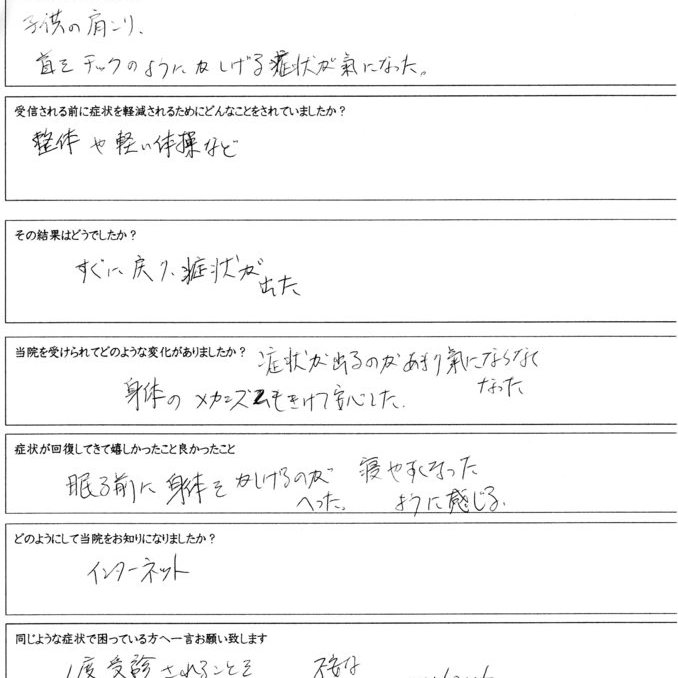 子供の肩こり、
首をチックのようにかしげる症状が氣になった。
受信される前に症状を軽減されるためにどんなことをされていましたか？
整体や軽い体操など
その結果はどうでしたか？
すぐに戻り、症状が
出た
当院を受けられてどのような変化がありましたか？ 症状が出るのがあまり氣にならなく
なった
身体のメカニズムもきけて安心した。
症状が回復してきて嬉しかったこと良かったこと
眠る前に身体をかしげるのが 寝やすくなった
へった。 ように感じる。
どのようにして当院をお知りになりましたか？
インターネット
同じような症状で困っている方へ一言お願い致します
1度受診されることを